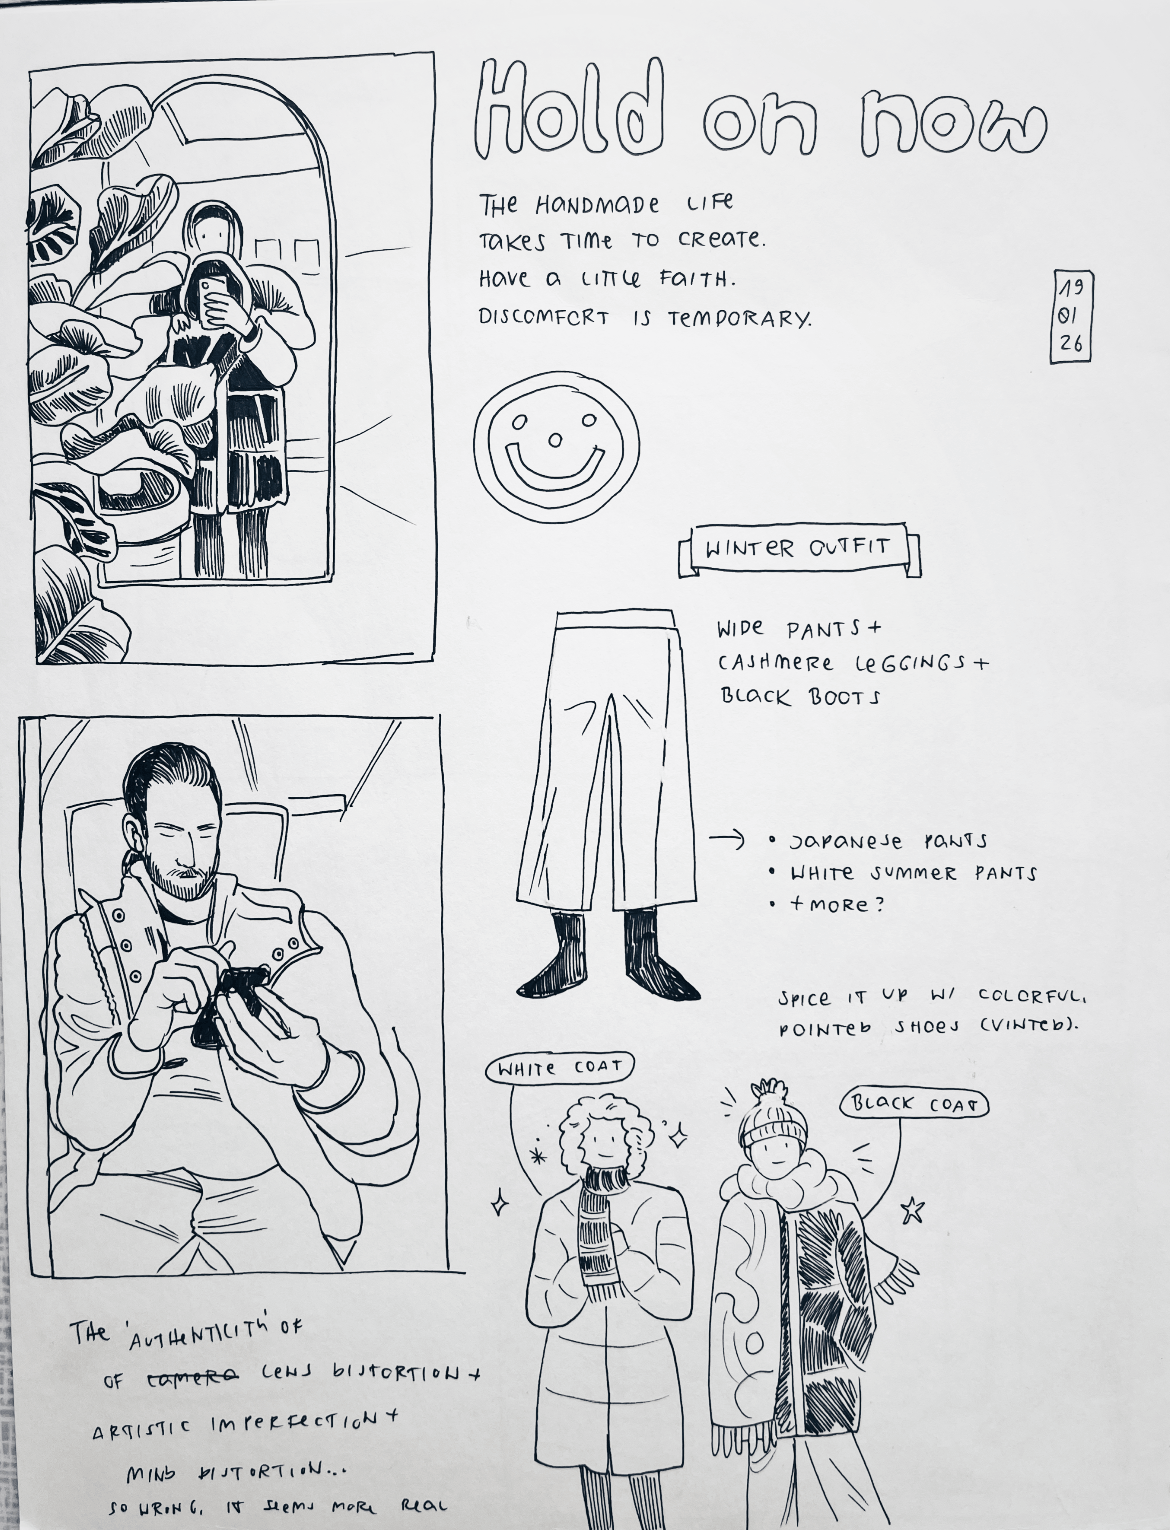 Hold on now
THE HANDMADE LIFE
TAKES TIME TO CREATE.
HAVE A LITTLE FAITH.
DISCOMFORT IS TEMPORARY.
19
01
26
WINTER OUTFIT
WIDE PANTS +
CASHMERE LEGGINGS +
BLACK BOOTS
→ • JAPANESE PANTS
• WHITE SUMMER PANTS
• + MORE?
SPICE IT UP W/ COLORFUL,
POINTED SHOES (VINTED).
WHITE COAT
BLACK COAT
THE 'AUTHENTICITY' OF
OF camera LENS DISTORTION +
ARTISTIC IMPERFECTION +
MIND DISTORTION...
SO WRONG, IT SEEMS MORE REAL